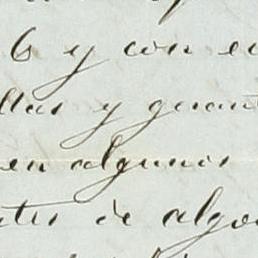 6 y con e
llas y garant
en algunos
tes de algo